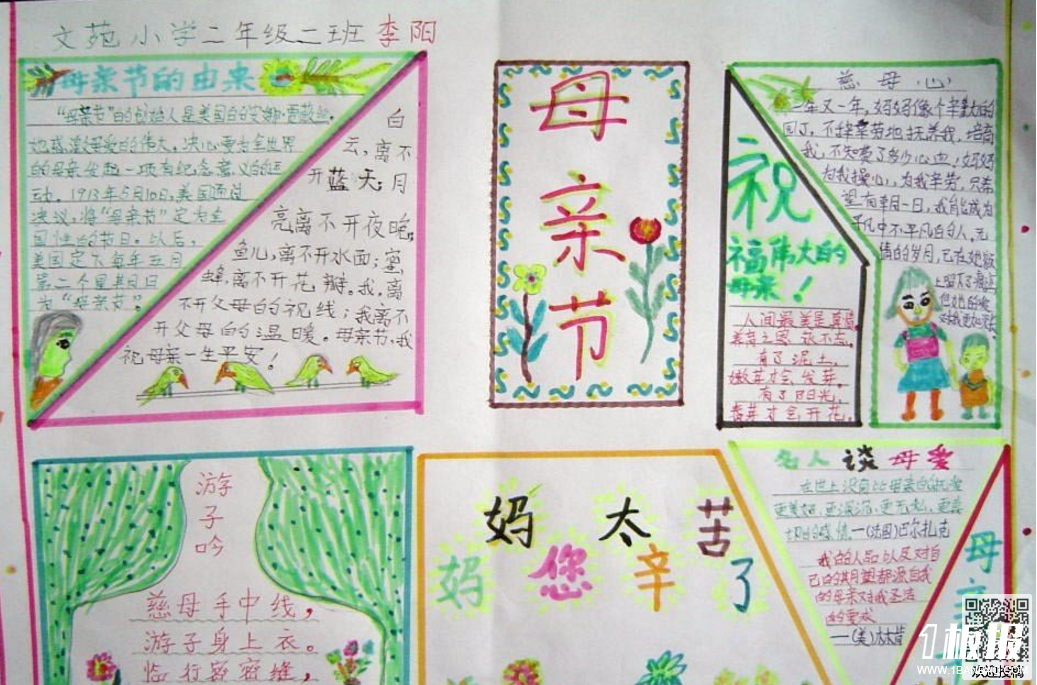 文苑小学二年级二班 李阳
母亲节的由来
"母亲节"的创始人是美国的安娜·
她感激母爱的伟大。决心要为全世界
的母亲发起一项有纪念意义的运
动。1913年5月10日,美国通过
决议,将"母亲节"定为全
国性的节日。以后,
美国定下每年五月
第二个星期日
为"母亲节"。
白
云,离不
开蓝天;月
亮离不开夜晚;
鱼儿,离不开水面;蜜
蜂,离不开花瓣。我,离
不开父母的视线;我离不
开父母的温暖。母亲节,我
祝母亲一生平安!
母
亲
节
祝
福伟大的
母亲!
人间最美是真情,
养育之恩永不忘。
有了泥土,
嫩芽才会发芽。
有了阳光,
春芽才会开花。
慈母心
一年又一年,妈妈像个辛勤的
园丁,不辞辛劳地抚养我,培育
我,不知费了多少心血,妈妈
为我操心,为我辛劳,只希
望有朝一日,我能成为
平凡中不平凡的人。无
情的岁月,已在她额
上留下了
游
子
吟
慈母手中线,
游子身上衣。
临行密密缝,
妈 太 苦
妈 您 辛 了
名人谈母爱
在世上没有比母亲的
更美好,更深沉,更无私,更真
—(法国)巴尔扎克
我的人品以及对自
己的期望都源自我
的母亲对我圣洁
的要求
—(美)林肯
母
1板报
WWW.1BANBAO.COM
欢迎投稿